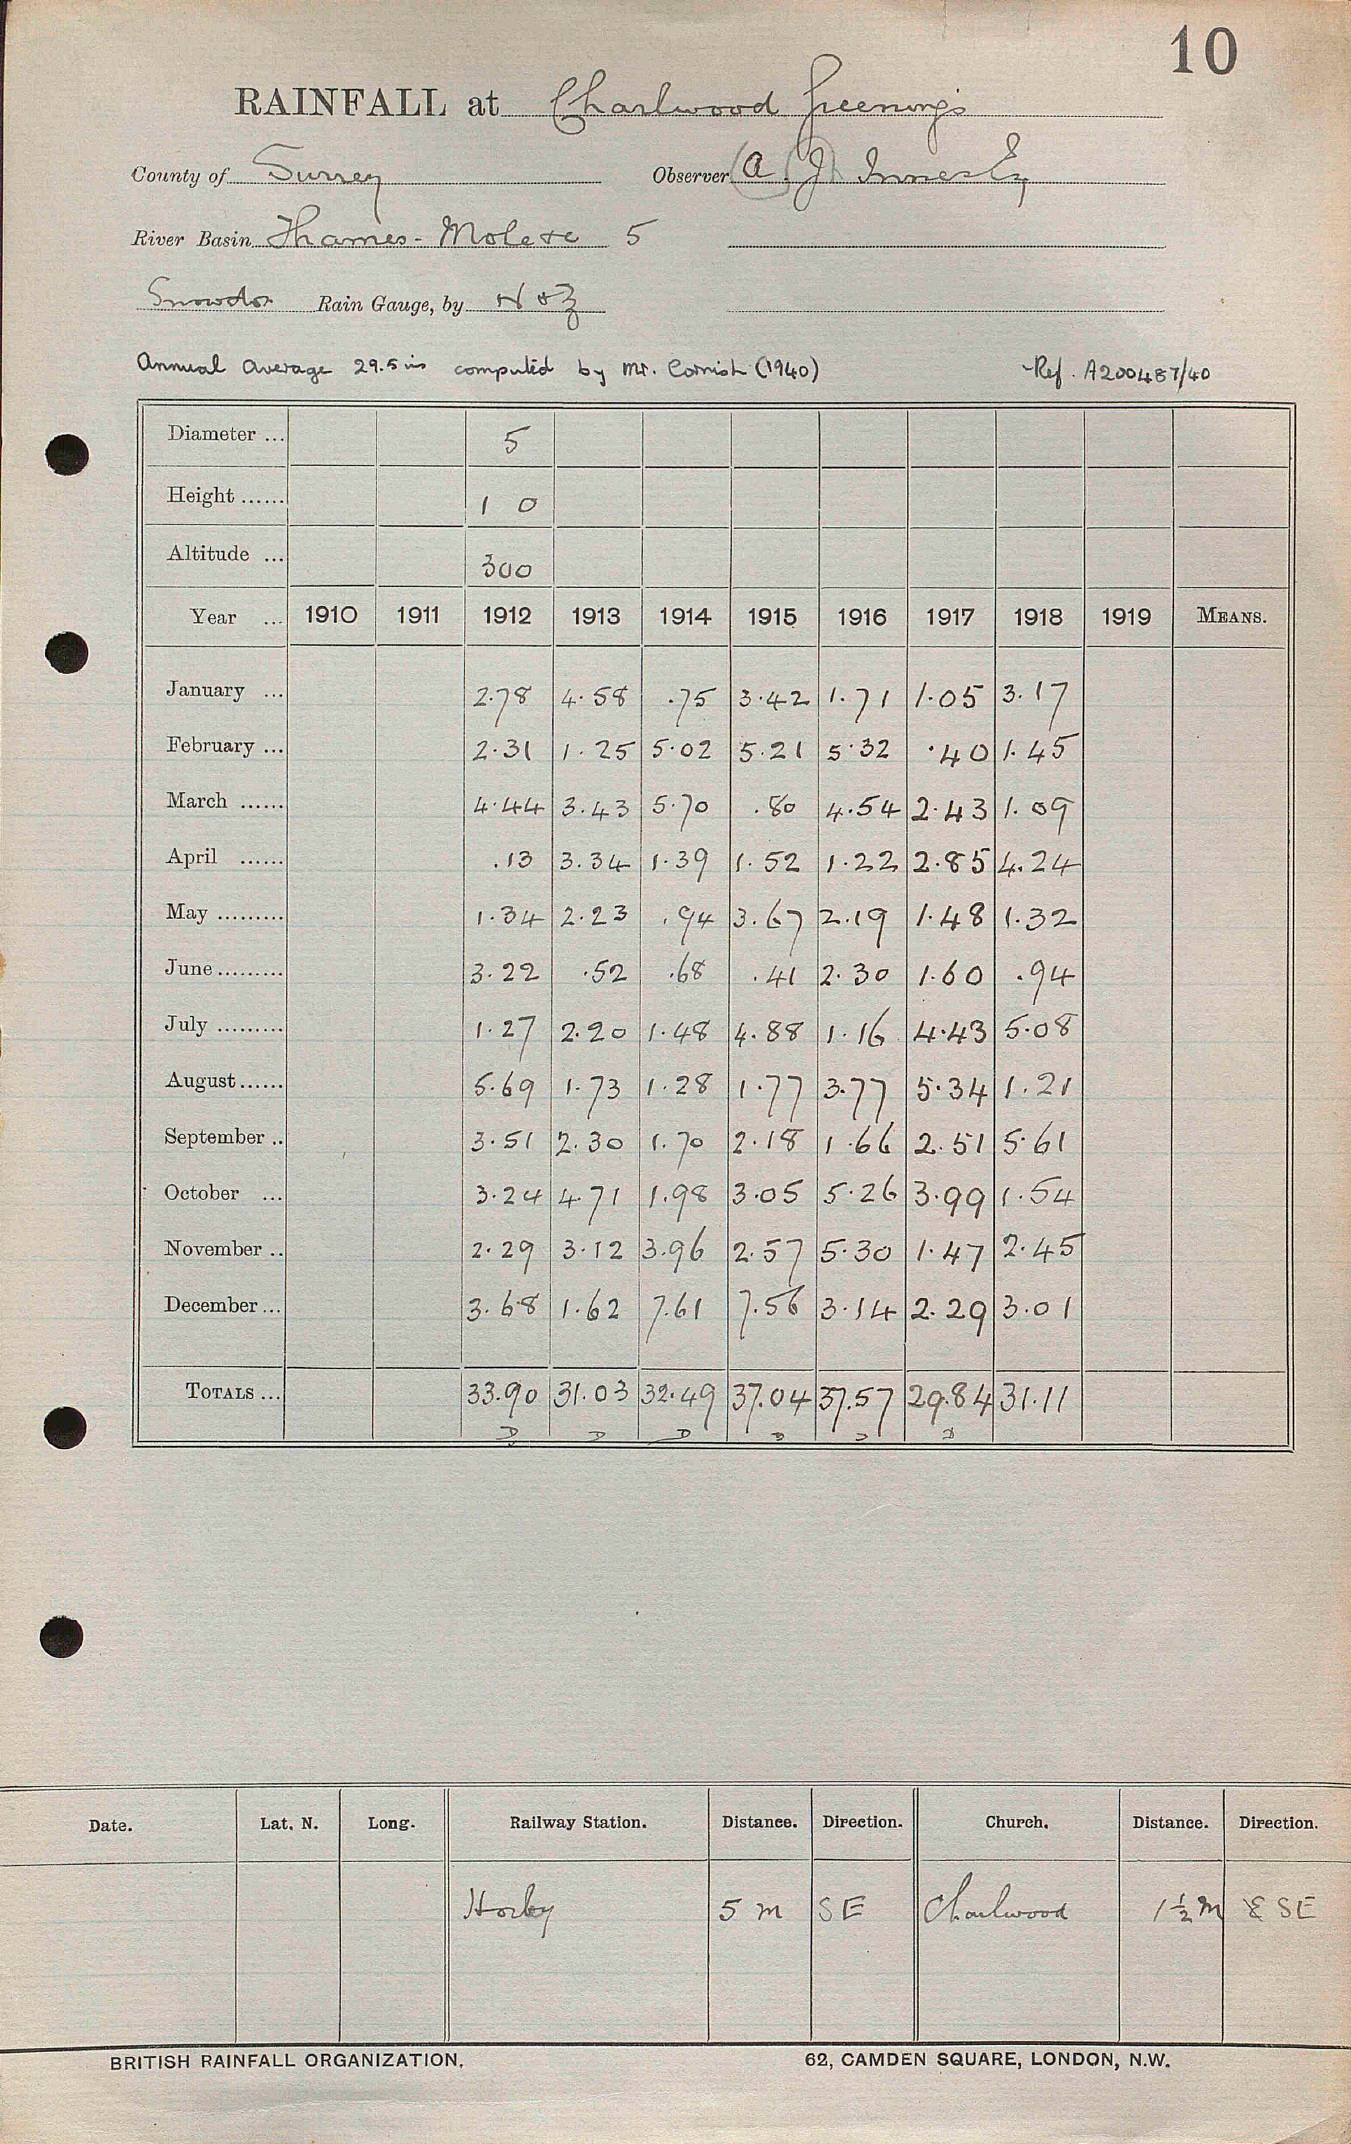 10
RAINFALL at Charlwood Greenings
County of Surrey Observer (A. J.) Innes Esq
River Basin Thames - Mole &c 5
Snowdon Rain Gauge, by N & Z
Annual Average 29.5 ins computed by Mr. Cornish (1940) Ref. A200487/40
Diameter ... 5
Height ...... 1 0
Altitude ... 300
Year ... 1910 1911 1912 1913 1914 1915 1916 1917 1918 1919 MEANS.
January ... 2.78 4.58 .75 3.42 1.71 1.05 3.17
February ... 2.31 1.25 5.02 5.21 5.32 .40 1.45
March ...... 4.44 3.43 5.70 .80 4.54 2.43 1.09
April ...... .13 3.34 1.39 1.52 1.22 2.85 4.24
May ......... 1.34 2.23 .94 3.67 2.19 1.48 1.32
June ......... 3.22 .52 .68 .41 2.30 1.60 .94
July ......... 1.27 2.20 1.48 4.88 1.16 4.43 5.08
August ...... 5.69 1.73 1.28 1.77 3.77 5.34 1.21
September .. 3.51 2.30 1.70 2.18 1.66 2.51 5.61
October ... 3.24 4.71 1.98 3.05 5.26 3.99 1.54
November .. 2.29 3.12 3.96 2.57 5.30 1.47 2.45
December ... 3.68 1.62 7.61 7.56 3.14 2.29 3.01
TOTALS ... 33.90 31.03 32.49 37.04 37.57 29.84 31.11
D D D D D D
Date. Lat. N. Long. Railway Station. Distance. Direction. Church. Distance. Direction.
Horley 5 m SE Charlwood 1½ m ESE
BRITISH RAINFALL ORGANIZATION. 62, CAMDEN SQUARE, LONDON, N.W.